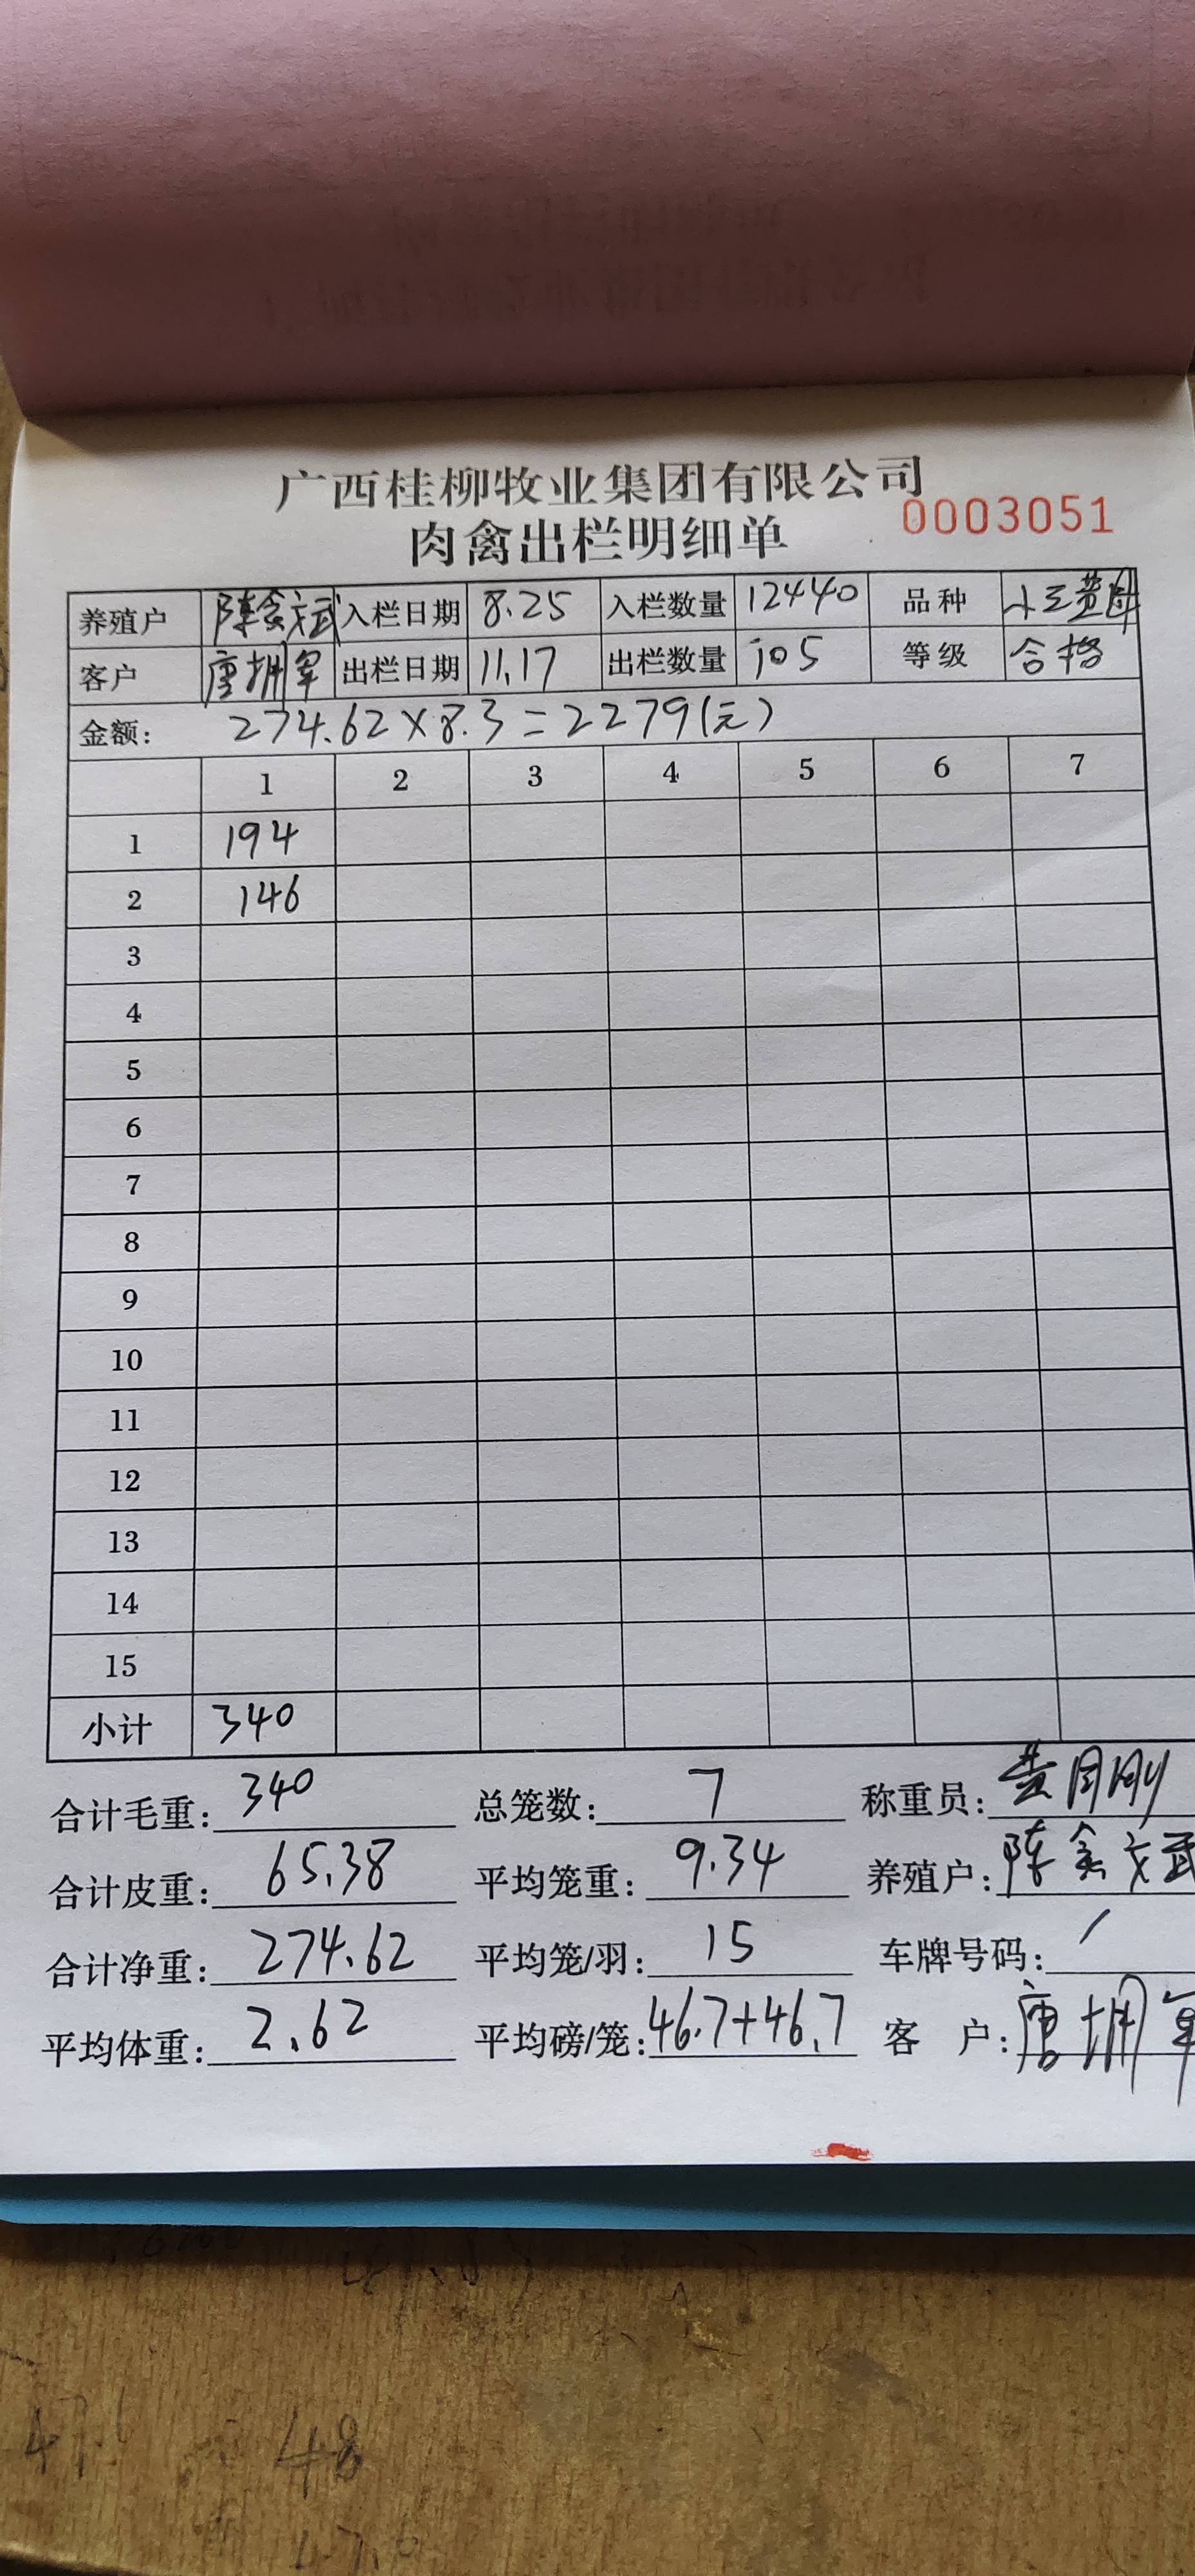 广西桂柳牧业集团有限公司
肉禽出栏明细单 0003051
养殖户 陈金文武 入栏日期 8.25 入栏数量 12440 品种
客户 唐拥军 出栏日期 11.17 出栏数量 105 等级 合格
金额: 274.62×8.3=2279(元)
1 2 3 4 5 6 7
1 194
2 146
3
4
5
6
7
8
9
10
11
12
13
14
15
小计 340
合计毛重: 340 总笼数: 7 称重员:
合计皮重: 65.38 平均笼重: 9.34 养殖户: 陈金文武
合计净重: 274.62 平均笼/羽: 15 车牌号码: /
平均体重: 2.62 平均磅/笼: 46.7+46.7 客 户: 唐拥军
48